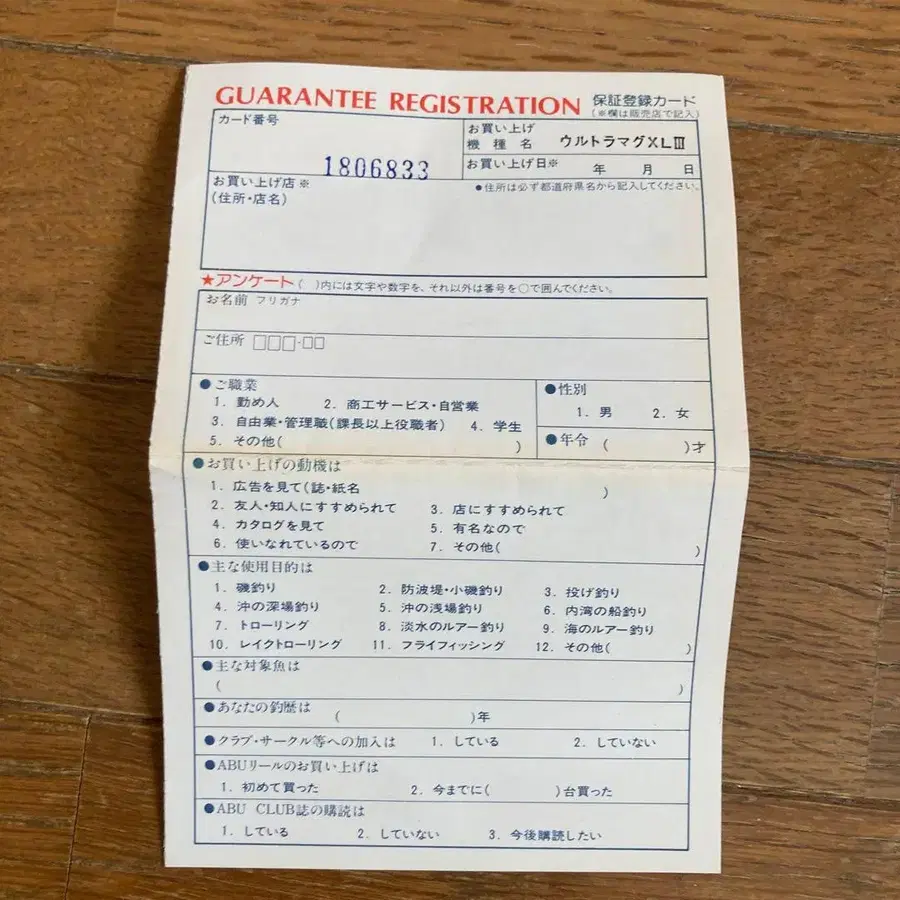 GUARANTEE REGISTRATION 保証登録カード
(※欄は販売店で記入)
カード番号
1806833
お買い上げ
機種名 ウルトラマグXLⅢ
お買い上げ日※ 年 月 日
お買い上げ店※
(住所・店名)
●住所は必ず都道府県名から記入してください。
★アンケート( )内には文字や数字を、それ以外は番号を○で囲んでください。
お名前 フリガナ
ご住所 □□□-□□
●ご職業
1. 勤め人 2. 商工サービス・自営業
3. 自由業・管理職(課長以上役職者) 4. 学生
5. その他( )
●性別
1. 男 2. 女
●年令 ( )才
●お買い上げの動機は
1. 広告を見て(誌・紙名 )
2. 友人・知人にすすめられて 3. 店にすすめられて
4. カタログを見て 5. 有名なので
6. 使いなれているので 7. その他( )
●主な使用目的は
1. 磯釣り 2. 防波堤・小磯釣り 3. 投げ釣り
4. 沖の深場釣り 5. 沖の浅場釣り 6. 内湾の船釣り
7. トローリング 8. 淡水のルアー釣り 9. 海のルアー釣り
10. レイクトローリング 11. フライフィッシング 12. その他( )
●主な対象魚は
( )
●あなたの釣歴は ( )年
●クラブ・サークル等への加入は 1. している 2. していない
●ABUリールのお買い上げは
1. 初めて買った 2. 今までに( )台買った
●ABU CLUB誌の購読は
1. している 2. していない 3. 今後購読したい